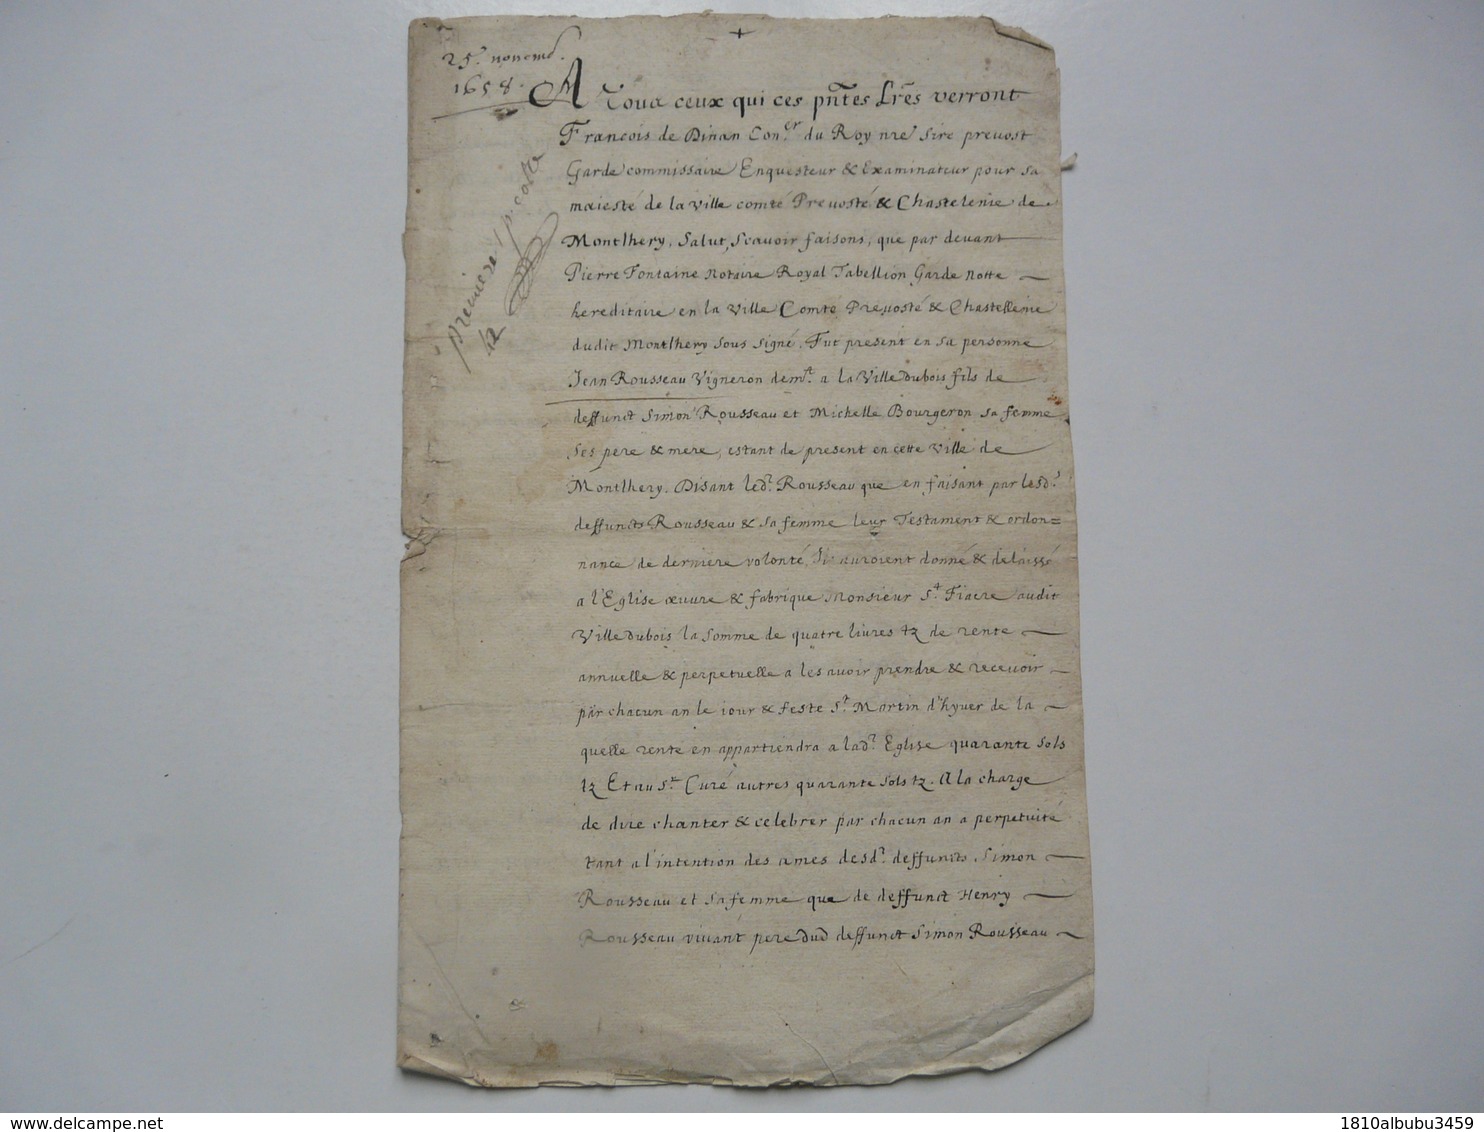 25.e novemb.
1658.
A Tous ceux qui ces pñtes Lrẽs verront
Francois de Dinan Con.er du Roy nre Sire prevost
Garde commissaire Enquesteur & Examinateur pour sa
maiesté de la ville comté Prevosté & Chastelenie de
Montlhery, Salut, Scavoir faisons, que par devant
Pierre Fontaine Notaire Royal Tabellion Garde Notte
hereditaire en la Ville Comté Prevosté & Chastellenie
dudit Montlhery sous signé. Fut present en sa personne
Jean Rousseau Vigneron dem.t a la Ville dubois fils de
deffunct Simon Rousseau et Michelle Bourgeron sa femme
ses pere & mere, estant de present en cette Ville de
Montlhery. Disant led.t Rousseau que en faisant par lesd.s
deffuncts Rousseau & sa femme leur Testament & ordon=
nance de derniere volonté, Ils auroient donné & delaissé
a l'Eglise œuvre & fabrique Monsieur S.t Fiacre audit
Ville dubois la somme de quatre livres tz de rente
annuelle & perpetuelle a les avoir prendre & recevoir
par chacun an le iour & feste S.t Martin d'hyver de la
quelle rente en appartiendra a lad.t Eglise quarante sols
tz Et au S.r Curé autres quarante sols tz. A la charge
de dire chanter & celebrer par chacun an a perpetuité
tant a l'intention des ames desd.s deffuncts Simon
Rousseau et sa femme que de deffunct Henry
Rousseau vivant pere dud deffunct Simon Rousseau
premiere
1810albubu3459
delcampe.net